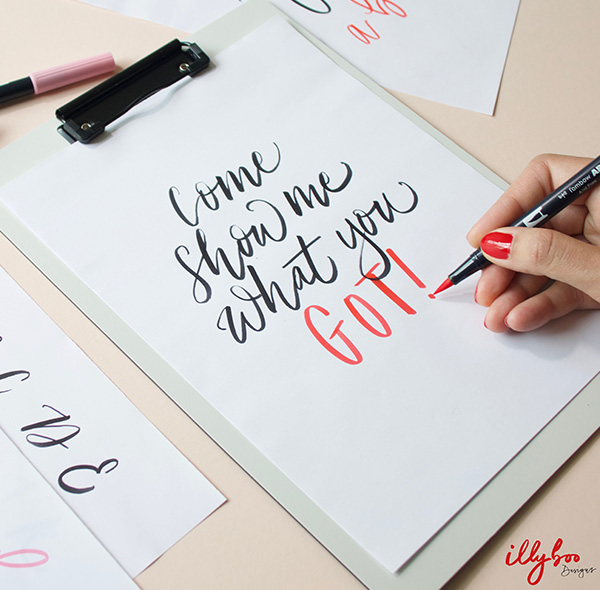 come
show me
what you
GOT!
tombow
illyboo
Designs